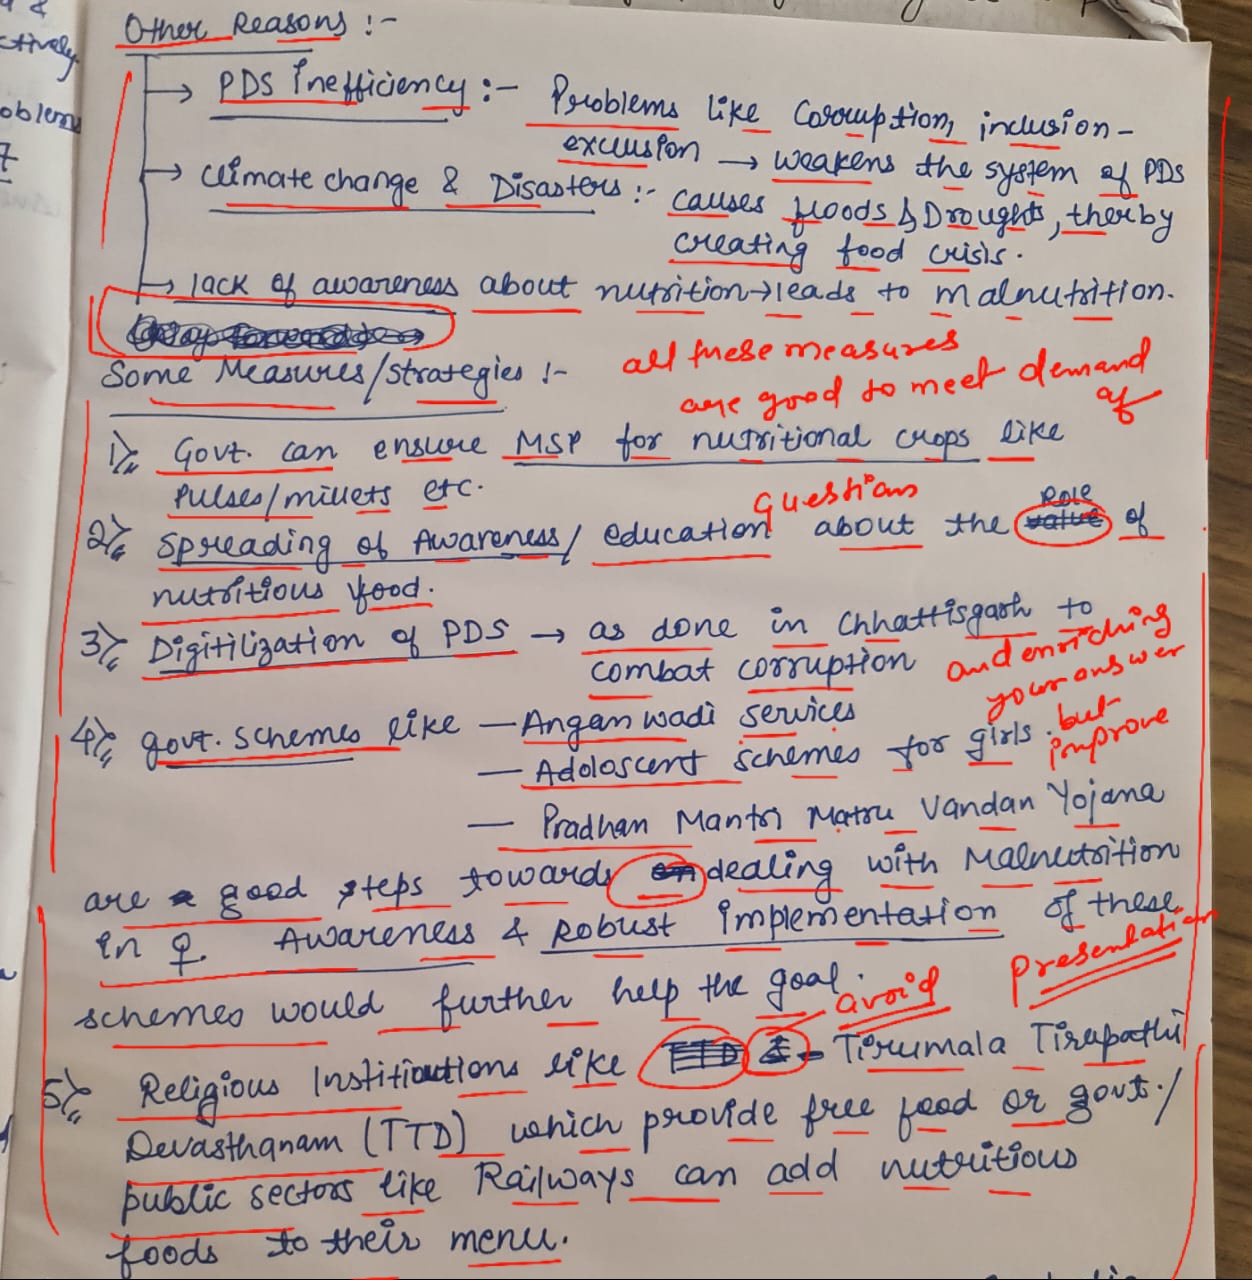 Other Reasons :-
→ PDS Inefficiency :- Problems like Corruption, inclusion-
exclusion → weakens the system of PDS
→ climate change & Disasters :- causes floods & Droughts, therby
creating food crisis.
→ lack of awareness about nutrition → leads to malnutrition.
Some Measures/strategies :-
all these measures
are good to meet demand
of
1) Govt. can ensure MSP for nutritional crops like
Pulses/millets etc.
Question
2) Spreading of Awareness/ education about the Role of
nutritious food.
3) Digitilization of PDS → as done in Chhattisgarh to
combat corruption
and enriching
your answer
but
improve
4) govt. schemes like — Anganwadi services
— Adoloscent schemes for girls.
— Pradhan Mantri Matru Vandan Yojana
are good steps towards dealing with Malnutrition
in ♀. Awareness & Robust implementation of these
Presentation
schemes would further help the goal.
avoid
5) Religious Institioutions like - Tirumala Tirupathi
Devasthanam (TTD) which provide free food or govt./
public sectors like Railways can add nutritious
foods to their menu.
ctively
oblems
7